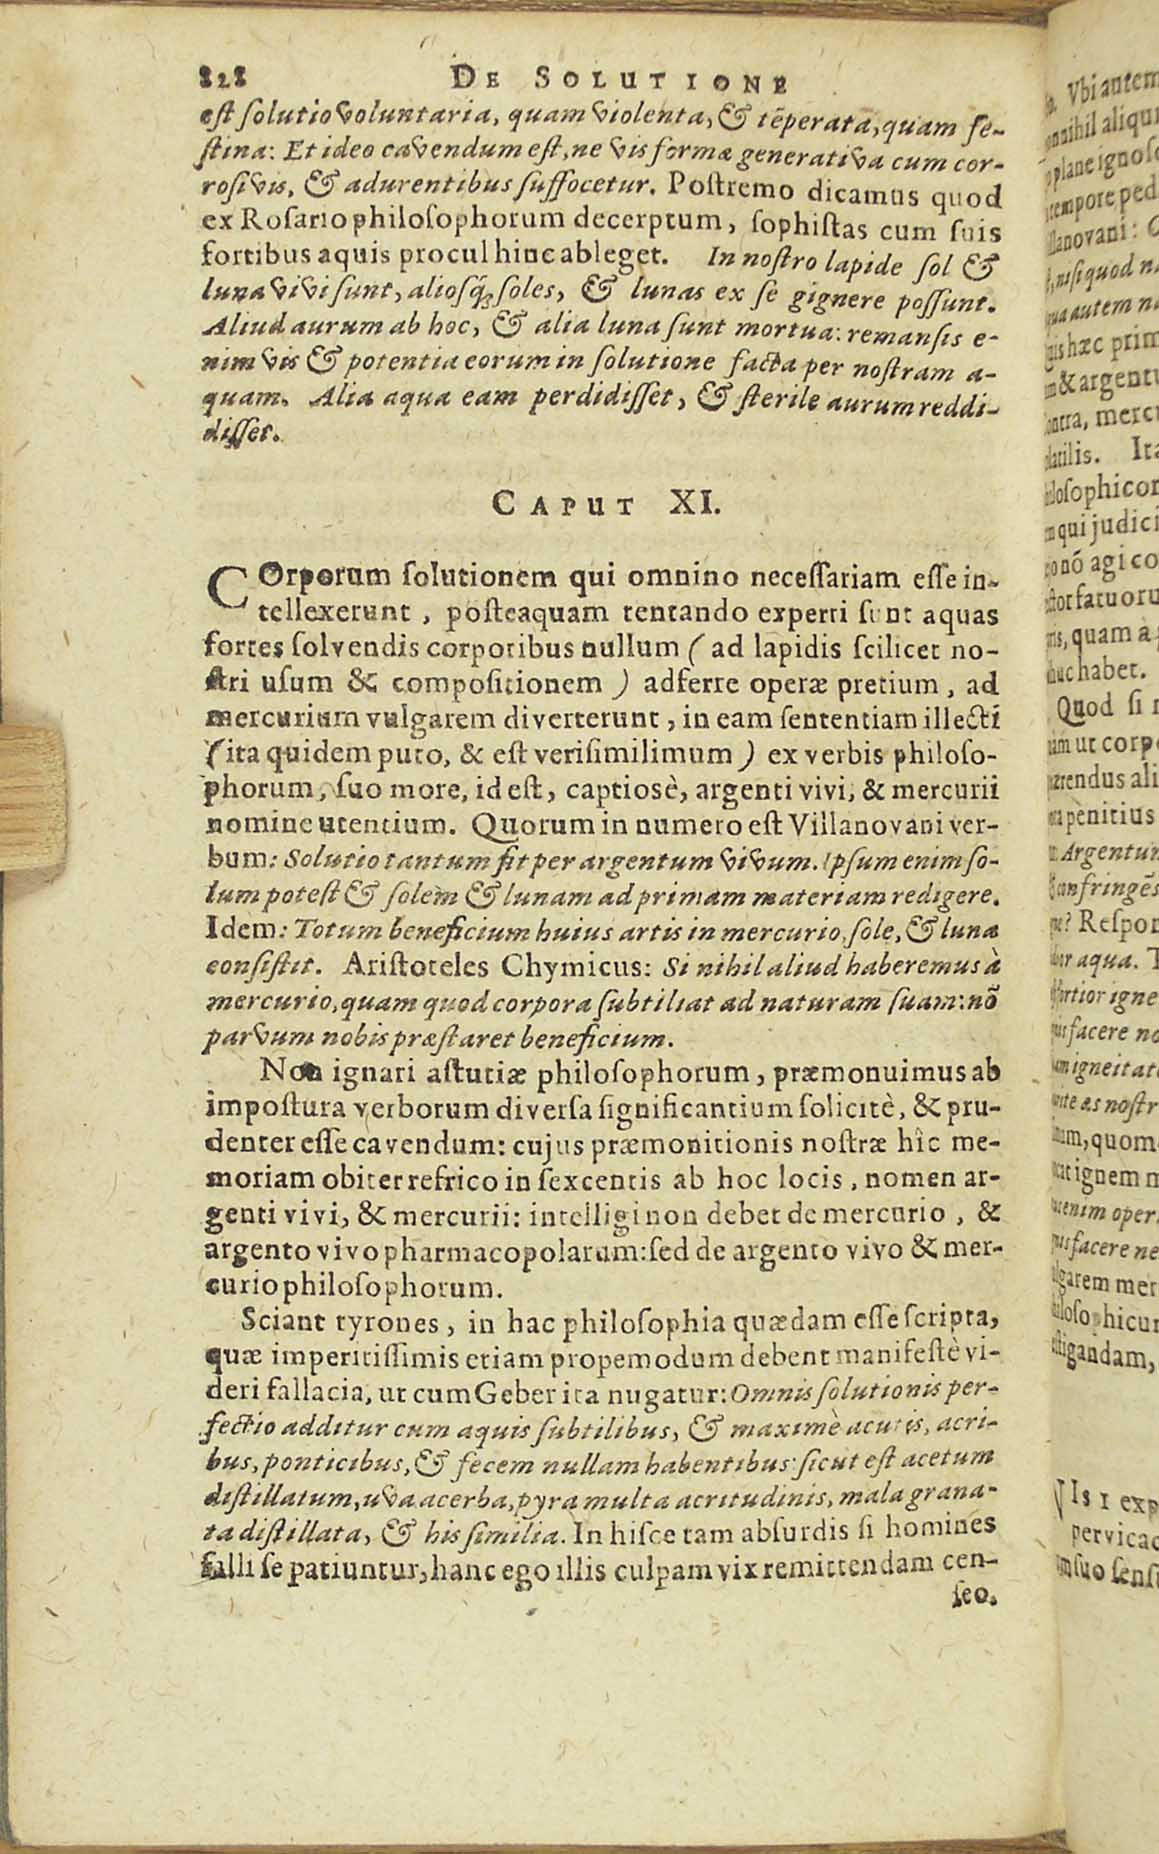 828 DE SOLUTIONE
est solutio voluntaria, quam violenta, & tēperata, quam fe-
stina: Et ideo cavendum est, ne vis formæ generativa cum cor-
rosivis, & adurentibus suffocetur. Postremo dicamus quod
ex Rosario philosophorum decerptum, sophistas cum suis
fortibus aquis procul hinc ableget. In nostro lapide sol &
luna vivi sunt, aliosq́; soles, & lunas ex se gignere possunt.
Aliud aurum ab hoc, & alia luna sunt mortua: remansis e-
nim vis & potentia eorum in solutione facta per nostram a-
quam. Alia aqua eam perdidisset, & sterile aurum reddi-
disset.
CAPUT XI.
COrporum solutionem qui omnino necessariam esse in-
tellexerunt, posteaquam tentando experti sunt aquas
fortes solvendis corporibus nullum (ad lapidis scilicet no-
stri usum & compositionem) adferre operæ pretium, ad
mercurium vulgarem diverterunt, in eam sententiam illecti
(ita quidem puto, & est verisimilimum) ex verbis philoso-
phorum, suo more, id est, captiosè, argenti vivi, & mercurii
nomine utentium. Quorum in numero est Villanovani ver-
bum: Solutio tantum fit per argentum vivum. Ipsum enim so-
lum potest & solem & lunam ad primam materiam redigere.
Idem: Totum beneficium huius artis in mercurio, sole, & luna
consistit. Aristoteles Chymicus: Si nihil aliud haberemus à
mercurio, quam quod corpora subtiliat ad naturam suam: nō
parvum nobis præstaret beneficium.
Non ignari astutiæ philosophorum, præmonuimus ab
impostura verborum diversa significantium solicitè, & pru-
denter esse cavendum: cujus præmonitionis nostræ hîc me-
moriam obiter refrico in sexcentis ab hoc locis, nomen ar-
genti vivi, & mercurii: intelligi non debet de mercurio, &
argento vivo pharmacopolarum: sed de argento vivo & mer-
curio philosophorum.
Sciant tyrones, in hac philosophia quædam esse scripta,
quæ imperitissimis etiam propemodum debent manifestè vi-
deri fallacia, ut cum Geber ita nugatur: Omnis solutionis per-
fectio additur cum aquis subtilibus, & maximè acutis, acri-
bus, ponticibus, & fecem nullam habentibus: sicut est acetum
distillatum, uva acerba, pyra multa acritudinis, mala grana-
ta distillata, & his similia. In hisce tam absurdis si homines
falli se patiuntur, hanc ego illis culpam vix remittendam cen-
seo.